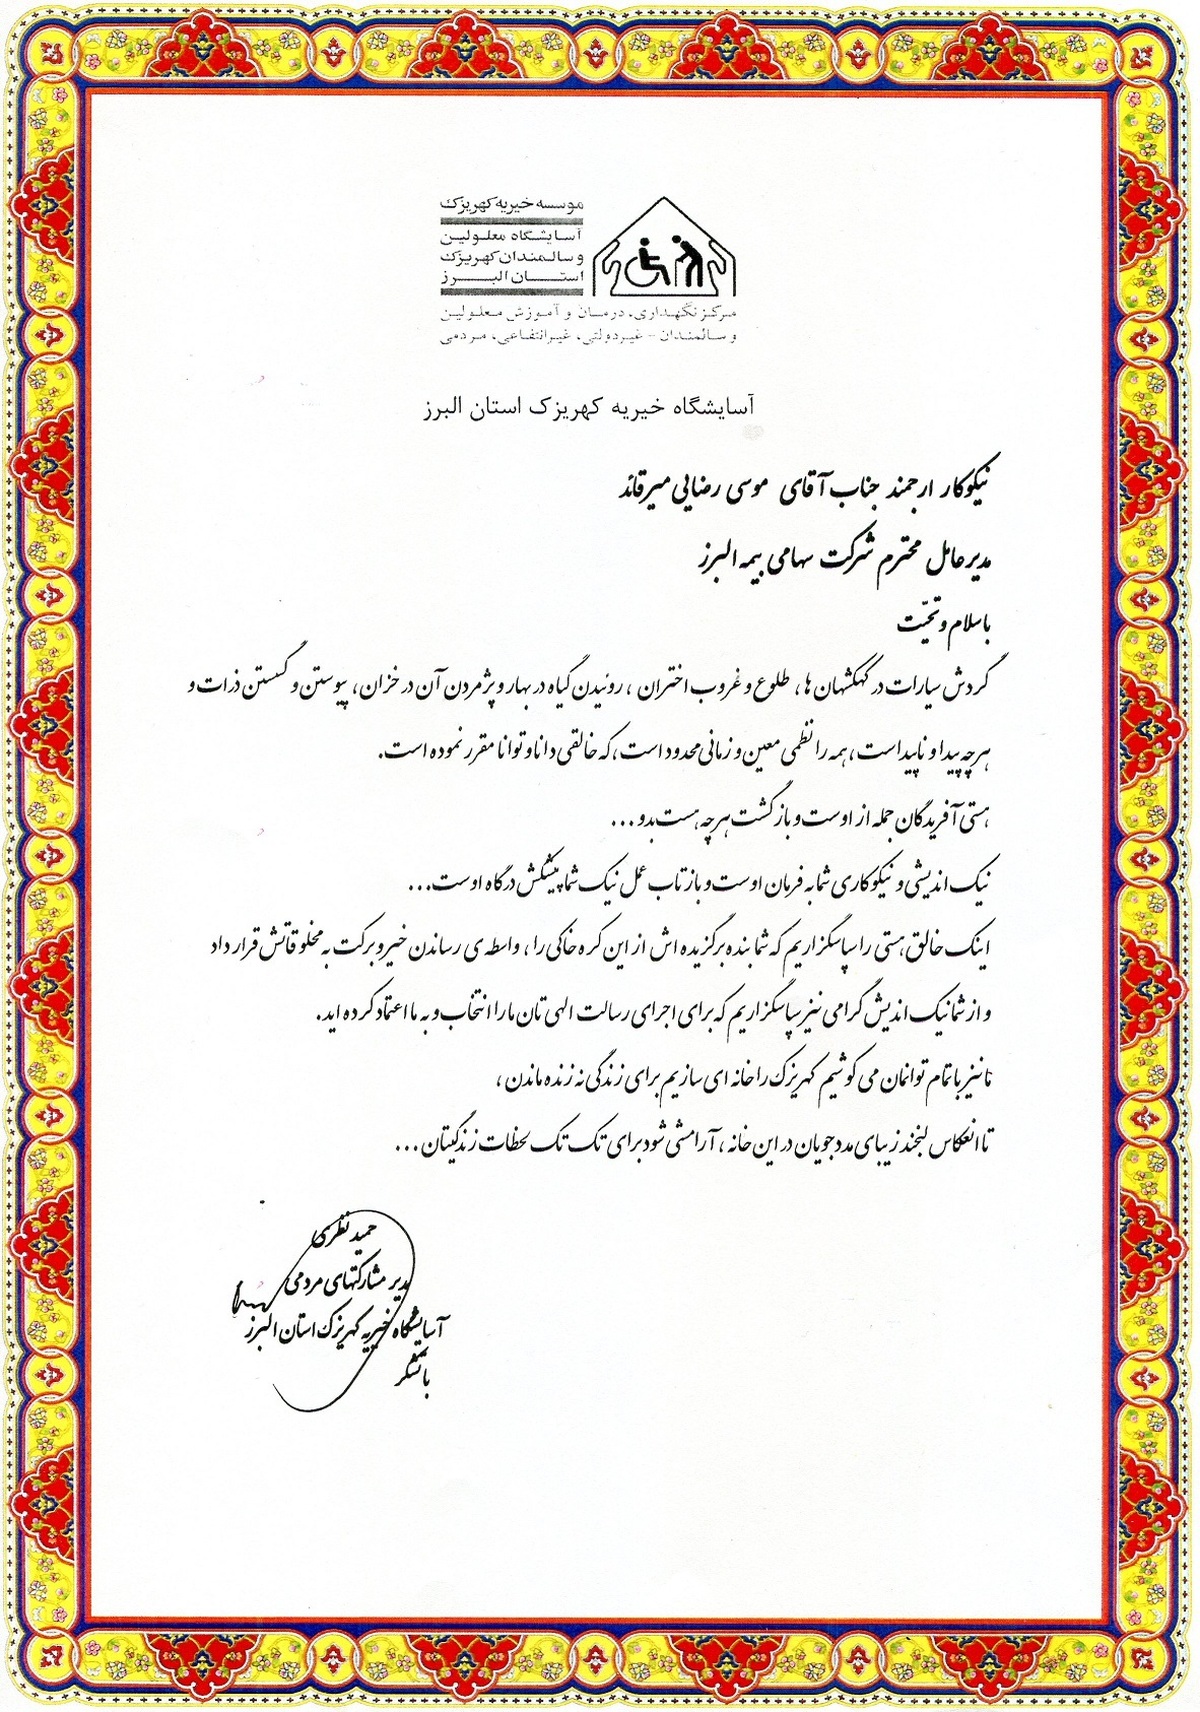 موسسه خیریه کهریزک
آسایشگاه معلولین
و سالمندان کهریزک
استان البرز
مرکز نگهداری، درمان و آموزش معلولین
و سالمندان - غیردولتی، غیرانتفاعی، مردمی
آسایشگاه خیریه کهریزک استان البرز
نیکوکار ارجمند جناب آقای موسی رضایی میرقائد
مدیرعامل محترم شرکت سهامی بیمه البرز
با سلام و تحیّت
گردش سیارات در کهکشهان ها، طلوع و غروب اختران، روئیدن گیاه در بهار و پژمردن آن در خزان، پیوستن و گسستن ذرات و
هرچه پیدا و ناپیداست، همه را نظمی معین و زمانی محدود است، که خالقی دانا و توانا مقرر نموده است.
هستی آفریدگان جمله از اوست و بازگشت هرچه هست بدو...
نیک اندیشی و نیکوکاری شما به فرمان اوست و بازتاب عمل نیک شما پیشکش درگاه اوست...
اینک خالق هستی را سپاسگزاریم که شما بنده برگزیده اش از این کره خاکی را، واسطه ی رساندن خیر و برکت به مخلوقاتش قرار داد
و از شما نیک اندیش گرامی نیز سپاسگزاریم که برای اجرای رسالت الهی تان ما را انتخاب و به ما اعتماد کرده اید.
ما نیز با تمام توانمان می کوشیم کهریزک را خانه ای سازیم برای زندگی نه زنده ماندن،
تا انعکاس لبخند زیبای مددجویان در این خانه، آرامشی شود برای تک تک لحظات زندگیتان...
حمید نظری
مدیر مشارکتهای مردمی
آسایشگاه خیریه کهریزک استان البرز
با تشکر